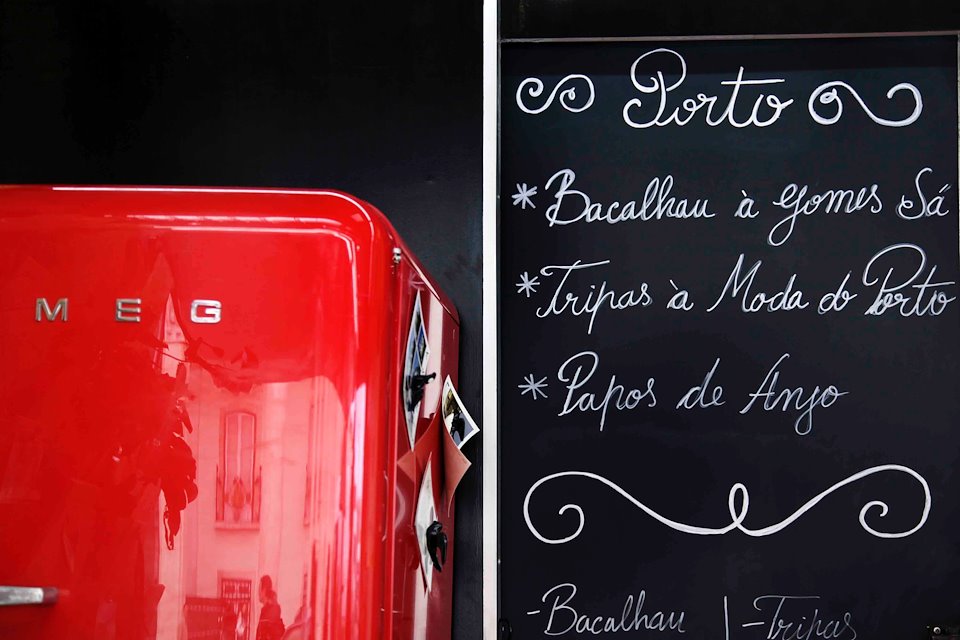 MEG
Porto
*Bacalhau à Gomes Sá
*Tripas à Moda do Porto
*Papos de Anjo
-Bacalhau | -Tripas